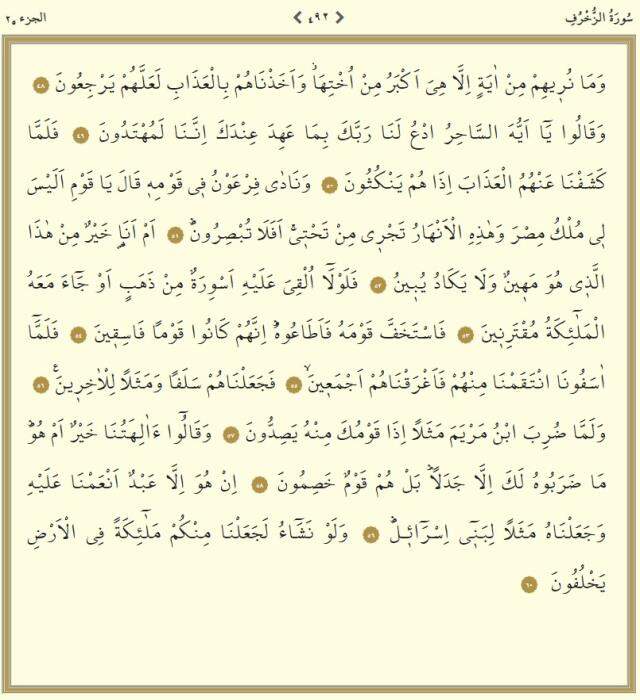 سُورَةُ الزُّخْرُفِ ٤٩٢ الجزء ٢٥
وَمَا نُرٖيهِمْ مِنْ اٰيَةٍ اِلَّا هِيَ اَكْبَرُ مِنْ اُخْتِهَاۘ وَاَخَذْنَاهُمْ بِالْعَذَابِ لَعَلَّهُمْ يَرْجِعُونَ ٤٨
وَقَالُوا يَٓا اَيُّهَ السَّاحِرُ ادْعُ لَنَا رَبَّكَ بِمَا عَهِدَ عِنْدَكَ اِنَّـنَا لَمُهْتَدُونَ ٤٩ فَلَمَّا
كَشَفْنَا عَنْهُمُ الْعَذَابَ اِذَا هُمْ يَنْكُثُونَ ٥٠ وَنَادٰى فِرْعَوْنُ فٖي قَوْمِهٖ قَالَ يَا قَوْمِ اَلَيْسَ
لٖي مُلْكُ مِصْرَ وَهٰذِهِ الْاَنْهَارُ تَجْرٖي مِنْ تَحْتٖيۚ اَفَلَا تُبْصِرُونَۜ ٥١ اَمْ اَنَا۬ خَيْرٌ مِنْ هٰذَا
الَّذٖي هُوَ مَهٖينٌ وَلَا يَكَادُ يُبٖينُ ٥٢ فَلَوْلَٓا اُلْقِيَ عَلَيْهِ اَسْوِرَةٌ مِنْ ذَهَبٍ اَوْ جَٓاءَ مَعَهُ
الْمَلٰٓئِكَةُ مُقْتَرِنٖينَ ٥٣ فَاسْتَخَفَّ قَوْمَهُ فَاَطَاعُوهُۜ اِنَّهُمْ كَانُوا قَوْمًا فَاسِقٖينَ ٥٤ فَلَمَّٓا
اٰسَفُونَا انْتَقَمْنَا مِنْهُمْ فَاَغْرَقْنَاهُمْ اَجْمَعٖينَۙ ٥٥ فَجَعَلْنَاهُمْ سَلَفًا وَمَثَلًا لِلْاٰخِرٖينَ۟ ٥٦
وَلَمَّا ضُرِبَ ابْنُ مَرْيَمَ مَثَلًا اِذَا قَوْمُكَ مِنْهُ يَصِدُّونَ ٥٧ وَقَالُٓوا ءَاٰلِهَتُنَا خَيْرٌ اَمْ هُوَۜ
مَا ضَرَبُوهُ لَكَ اِلَّا جَدَلًاۜ بَلْ هُمْ قَوْمٌ خَصِمُونَ ٥٨ اِنْ هُوَ اِلَّا عَبْدٌ اَنْعَمْنَا عَلَيْهِ
وَجَعَلْنَاهُ مَثَلًا لِبَنٖٓي اِسْرَٓائٖلَۜ ٥٩ وَلَوْ نَشَٓاءُ لَجَعَلْنَا مِنْكُمْ مَلٰٓئِكَةً فِي الْاَرْضِ
يَخْلُفُونَ ٦٠